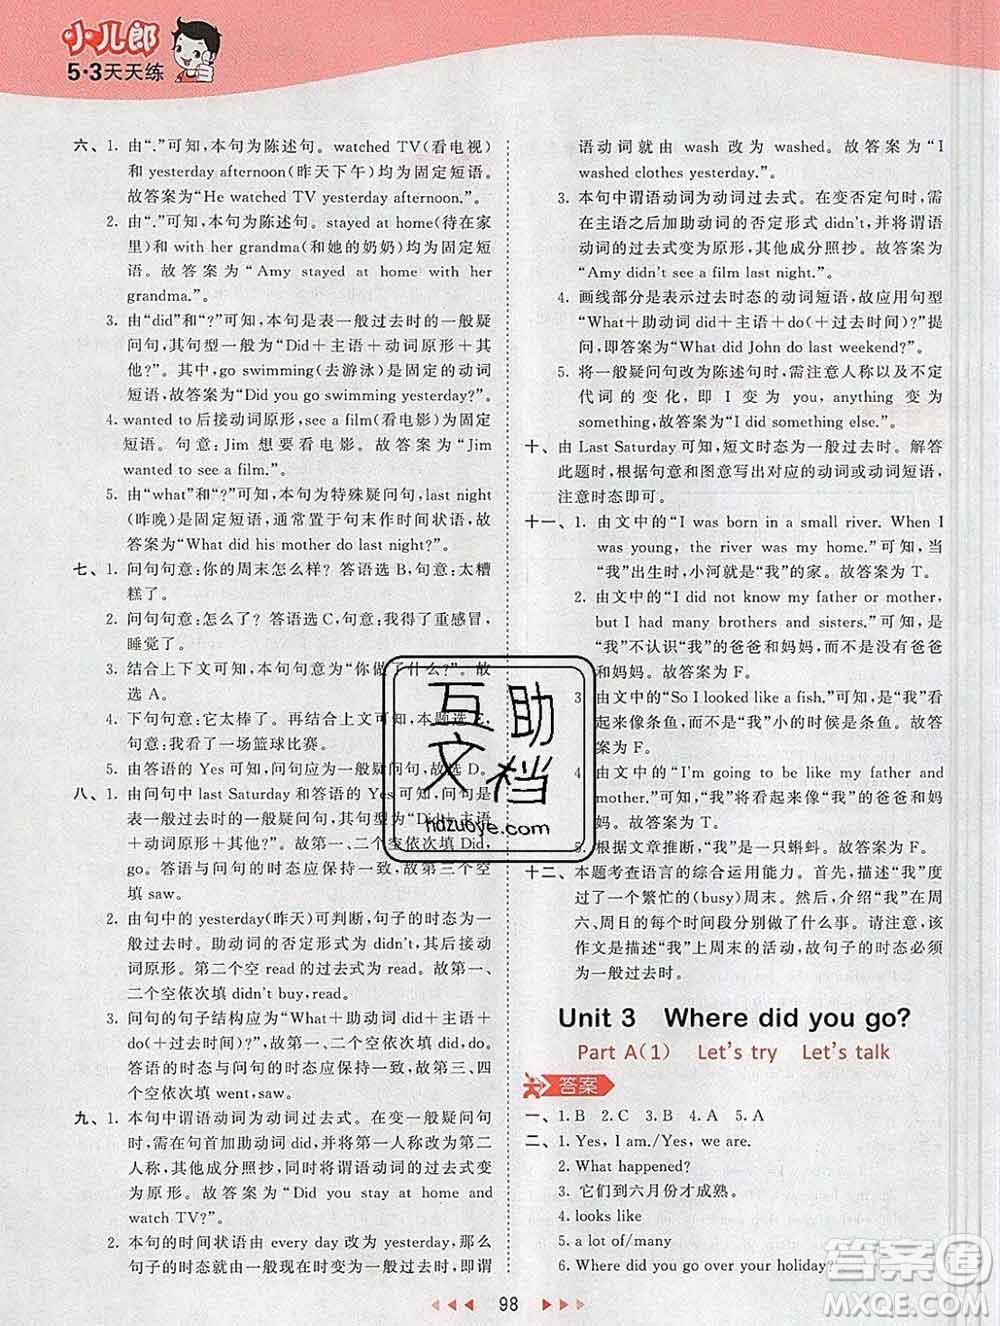 小儿郎
5·3天天练
六、1. 由“.”可知,本句为陈述句。watched TV(看电视)
和 yesterday afternoon(昨天下午)均为固定短语。
故答案为“He watched TV yesterday afternoon.”。
2. 由“.”可知,本句为陈述句。stayed at home(待在家
里)和 with her grandma(和她的奶奶)均为固定短
语。故答案为“Amy stayed at home with her
grandma.”。
3. 由“did”和“?”可知,本句是表一般过去时的一般疑
问句,其句型一般为“Did+主语+动词原形+其
他?”。其中,go swimming(去游泳)是固定的动词
短语,故答案为“Did you go swimming yesterday?”。
4. wanted to 后接动词原形,see a film(看电影)为固定
短语。句意:Jim 想要看电影。故答案为“Jim
wanted to see a film.”。
5. 由“what”和“?”可知,本句为特殊疑问句,last night
(昨晚)是固定短语,通常置于句末作时间状语,故
答案为“What did his mother do last night?”。
七、1. 问句句意:你的周末怎么样? 答语选 B,句意:太糟
糕了。
2. 问句句意:怎么了? 答语选 C,句意:我得了重感冒,
睡觉了。
3. 结合上下文可知,本句句意为“你做了什么?”。故
选 A。
4. 下句句意:它太棒了。再结合上文可知,本题选 E,
句意:我看了一场篮球比赛。
5. 由答语的 Yes 可知,问句应为一般疑问句,故选 D。
八、1. 由问句中的 last Saturday 和答语的 Yes 可知,问句是
表一般过去时的一般疑问句,其句型为“Did+主语
+动词原形+其他?”。故第一、二个空依次填 Did,
go。答语与问句的时态应保持一致。故第三个空
填 did。
2. 由句中的 yesterday(昨天)可判断,句子的时态为一
般过去时。助动词的否定形式为 didn't,其后接动
词原形。第二个空 read 的过去式为 read。故第一、
二个空依次填 didn't buy,read。
3. 问句的句子结构应为“What+助动词 did+主语+
do(+过去时间)?”。go 的过去式为 went。
答语的时态与问句的时态应保持一致。故第一、二
个空依次填 went,saw。
九、1. 本句中谓语动词为动词过去式。在变一般疑问句
时,需在句首加助动词 did,并将第一人称改为第二
人称,其他成分照抄,并将谓语动词的过去式变
为原形。故答案为“Did you stay at home and
watch TV?”。
2. 本句的时间状语由 every day 改为 yesterday,那么
句子的时态就由一般现在时变为一般过去时,即谓
语动词就由 wash 改为 washed。故答案为“I
washed clothes yesterday.”。
3. 本句中谓语动词为动词过去式。在变否定句时,需
在主语之后加助动词的否定形式 didn't,并将谓语
动词的过去式变为原形,其他成分照抄。故答案为
“Amy didn't see a film last night.”。
4. 画线部分是表示过去时态的动词短语,故应用句型
“What+助动词 did+主语+do(+过去时间)?”提
问,即答案为“What did John do last weekend?”。
5. 将一般疑问句改为陈述句时,需注意人称以及不定
代词的变化,即 I 变为 you,anything 变为
something,故答案为“I did something else.”。
十、由 Last Saturday 可知,短文时态为一般过去时。解答
此题时,根据句意和图意写出对应的动词或动词短语,
注意时态即可。
十一、1. 由文中的“I was born in a small river. When I
was young, the river was my home.”可知,当
“我”出生时,小河就是“我”的家。故答案为 F。
2. 由文中的“I did not know my father or mother,
but I had many brothers and sisters.”可知,
是“我”不认识“我”的爸爸和妈妈,而不是爸爸
和妈妈。故答案为 F。
3. 由文中的“So I looked like a fish.”可知,是“我”看
起来像条鱼,而不是“我”小的时候是条鱼。故答
案为 F。
4. 由文中的“I'm going to be like my father and
mother.”可知,“我”将看起来像“我”的爸爸和妈
妈。故答案为 T。
5. 根据文章推断,“我”是一只蝌蚪。故答案为 F。
十二、本题考查语言的综合运用能力。首先,描述“我”度
过了一个繁忙的(busy)周末。然后,介绍“我”在周
六、周日的每个时间段分别做了什么事。请注意,该
作文是描述“我”上周末的活动,故句子的时态必须
为一般过去时。
Unit 3 Where did you go?
Part A(1) Let's try Let's talk
答案
一、1. B 2. C 3. B 4. A 5. A
二、1. Yes, I am./Yes, we are.
2. What happened?
3. 它们到六月份才成熟。
4. looks like
5. a lot of/many
6. Where did you go over your holiday?
98
互助
文档
hdzuoye.com
答案圈
MXQE.COM